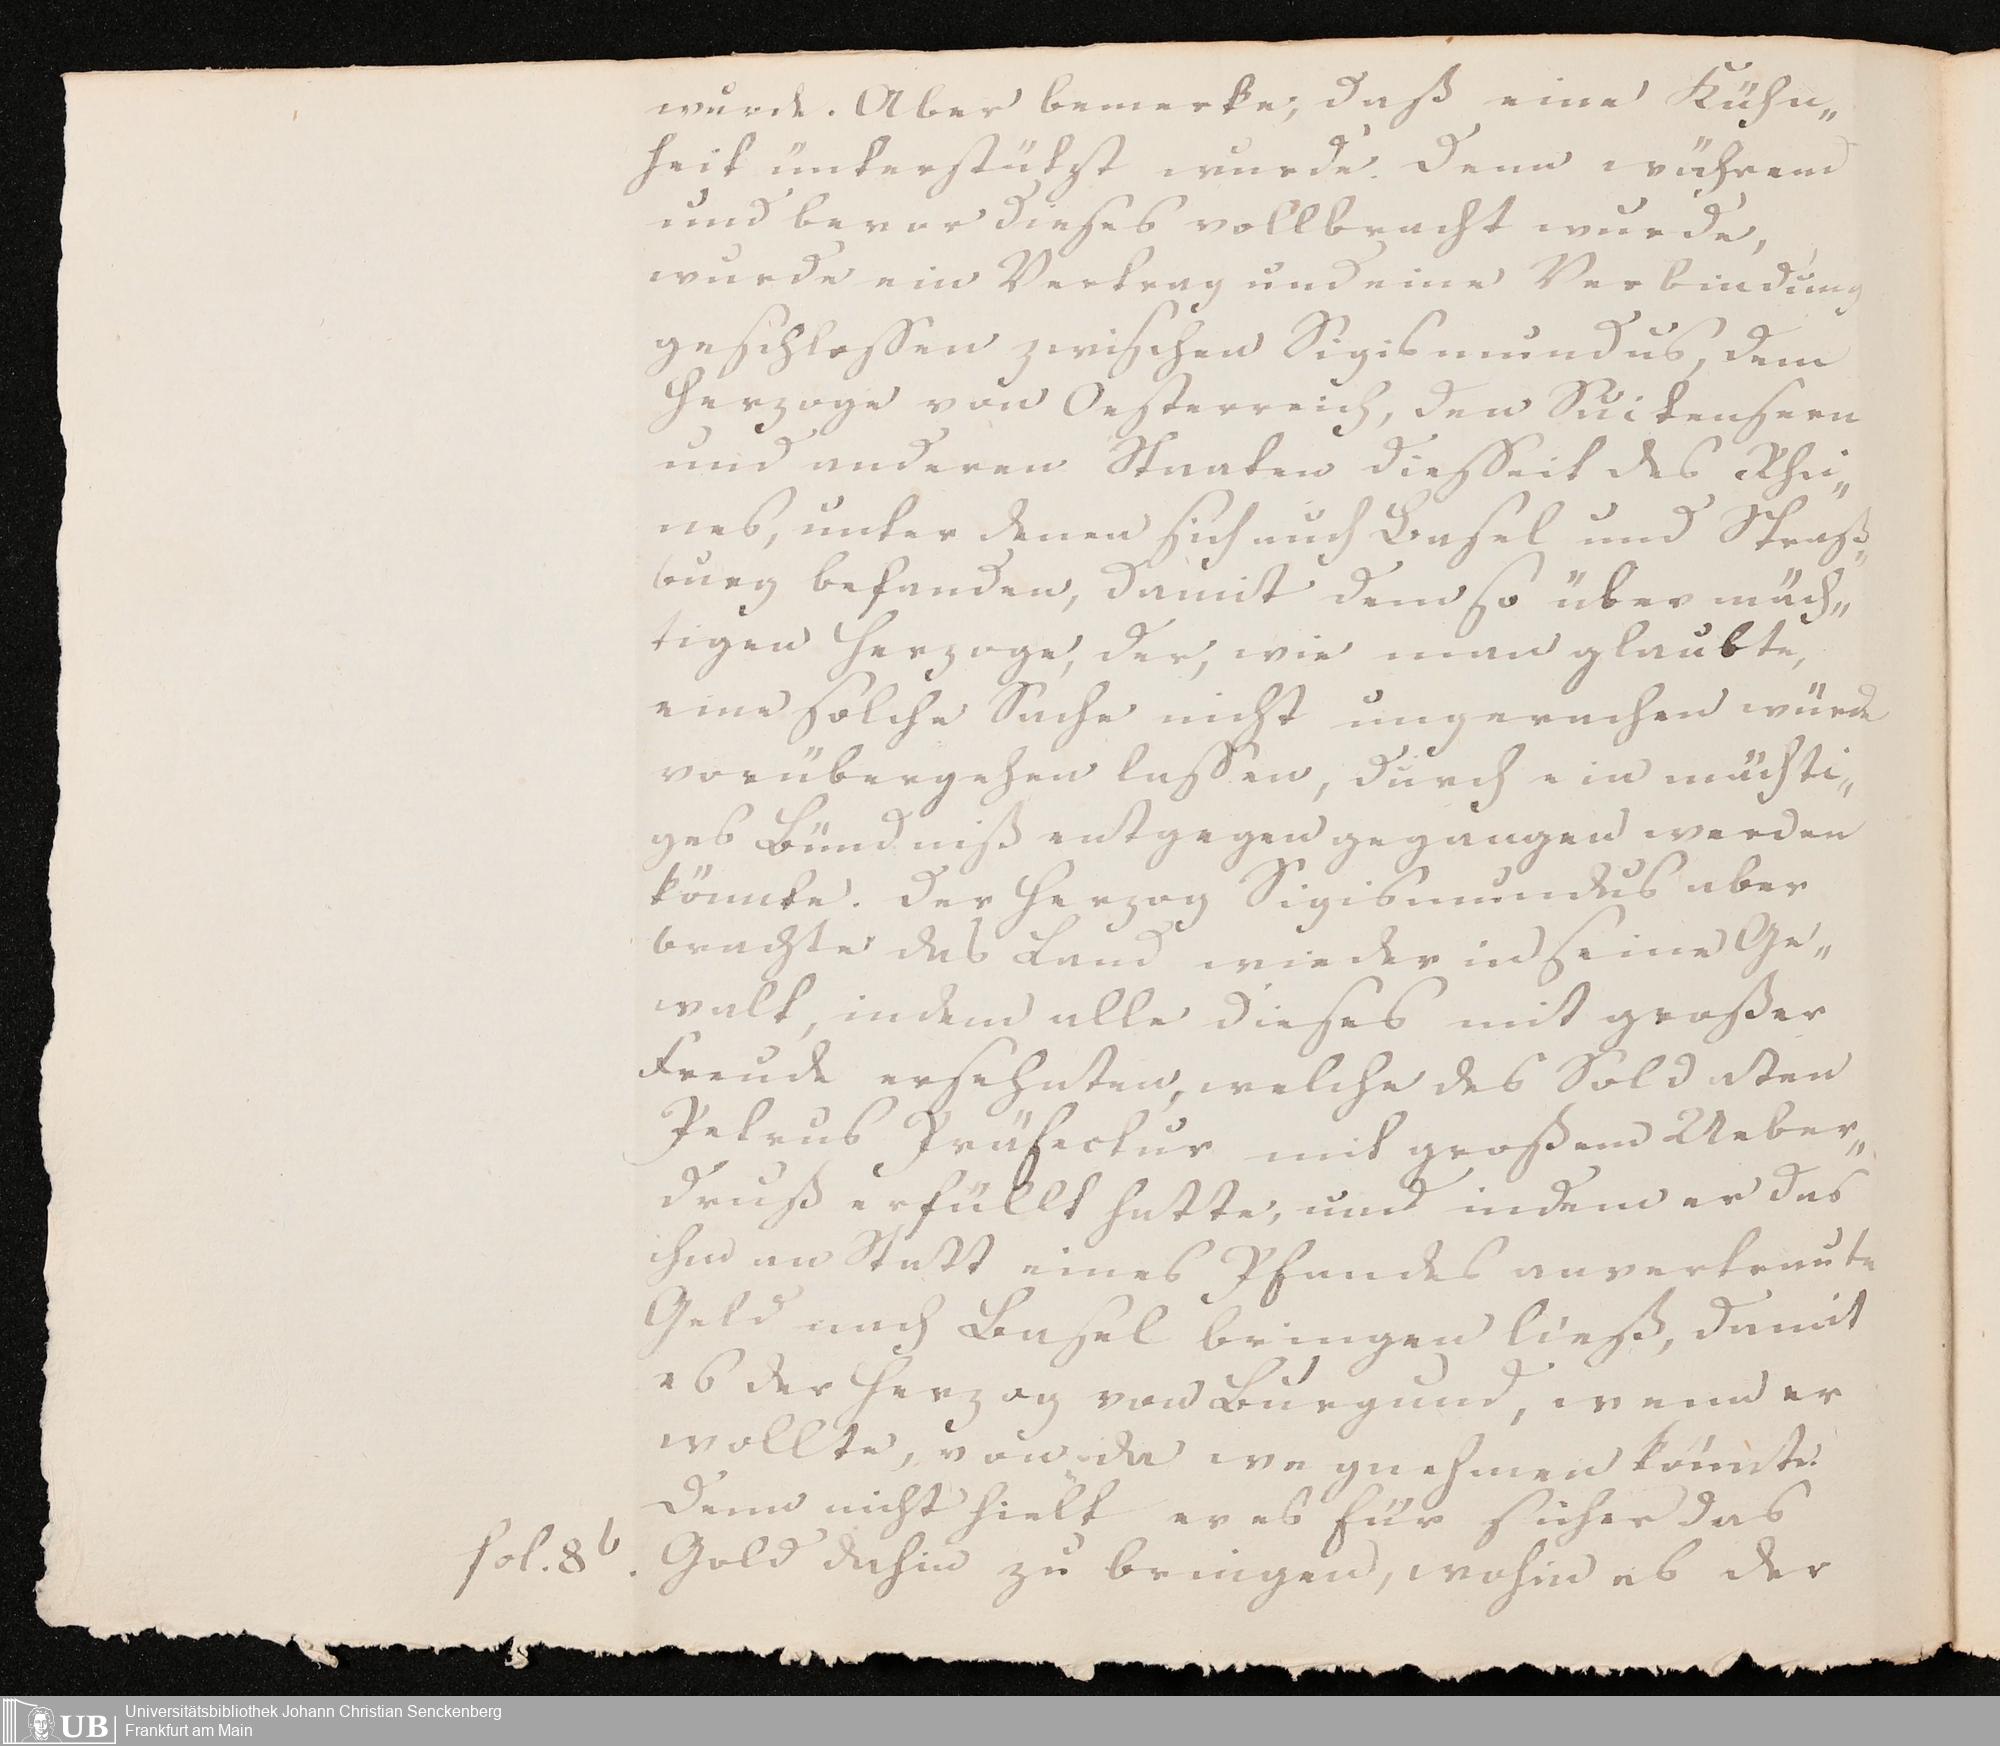 wurde. Aber bemerke, daß eine Kühn„
heit unterstützt wurde. Denn während
und bevor dieses vollbracht wurde,
wurde ein Vertrag und eine Verbindung
geschlossen zwischen Sigismundus, dem
Herzoge von Oesterreich, den Suitensern
und anderen Staaten diesseit des Rhei„
nes, unter denen sich auch Basel und Straß„
burg befanden, damit dem so übermäch„
tigen Herzoge, der, wie man glaubte,
eine solche Sache nicht ungerochen würde
vorübergehen lassen, durch ein mächti„
ges Bündniß entgegen gegangen werden
könnte. Der Herzog Sigismundus aber
brachte das Land wieder in seine Ge„
walt, indem alle dieses mit großer
Freude ersehnten, welche des Soldaten
Petrus Präfectur mit großem Ueber„
druß erfüllt hatte, und indem er das
ihm an Statt eines Pfandes anvertraute
Geld nach Basel bringen ließ, damit
es der Herzog von Burgund, wenn er
wollte, von da wegnehmen könnte.
Denn nicht hielt er es für sicher das
fol. 8b. Gold dahin zu bringen, wohin es der
Universitätsbibliothek Johann Christian Senckenberg
Frankfurt am Main
UB